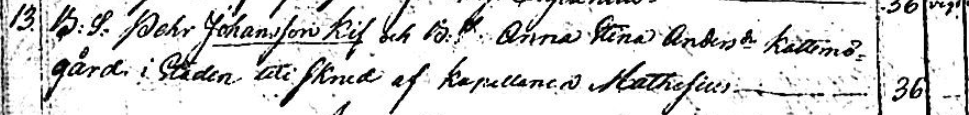 13. B. S. Pehr Johansson Kif och B. D. Anna Stina Andersdr Kattemö=
gård i Staden till Skred af Kapellanen Mathesius 36